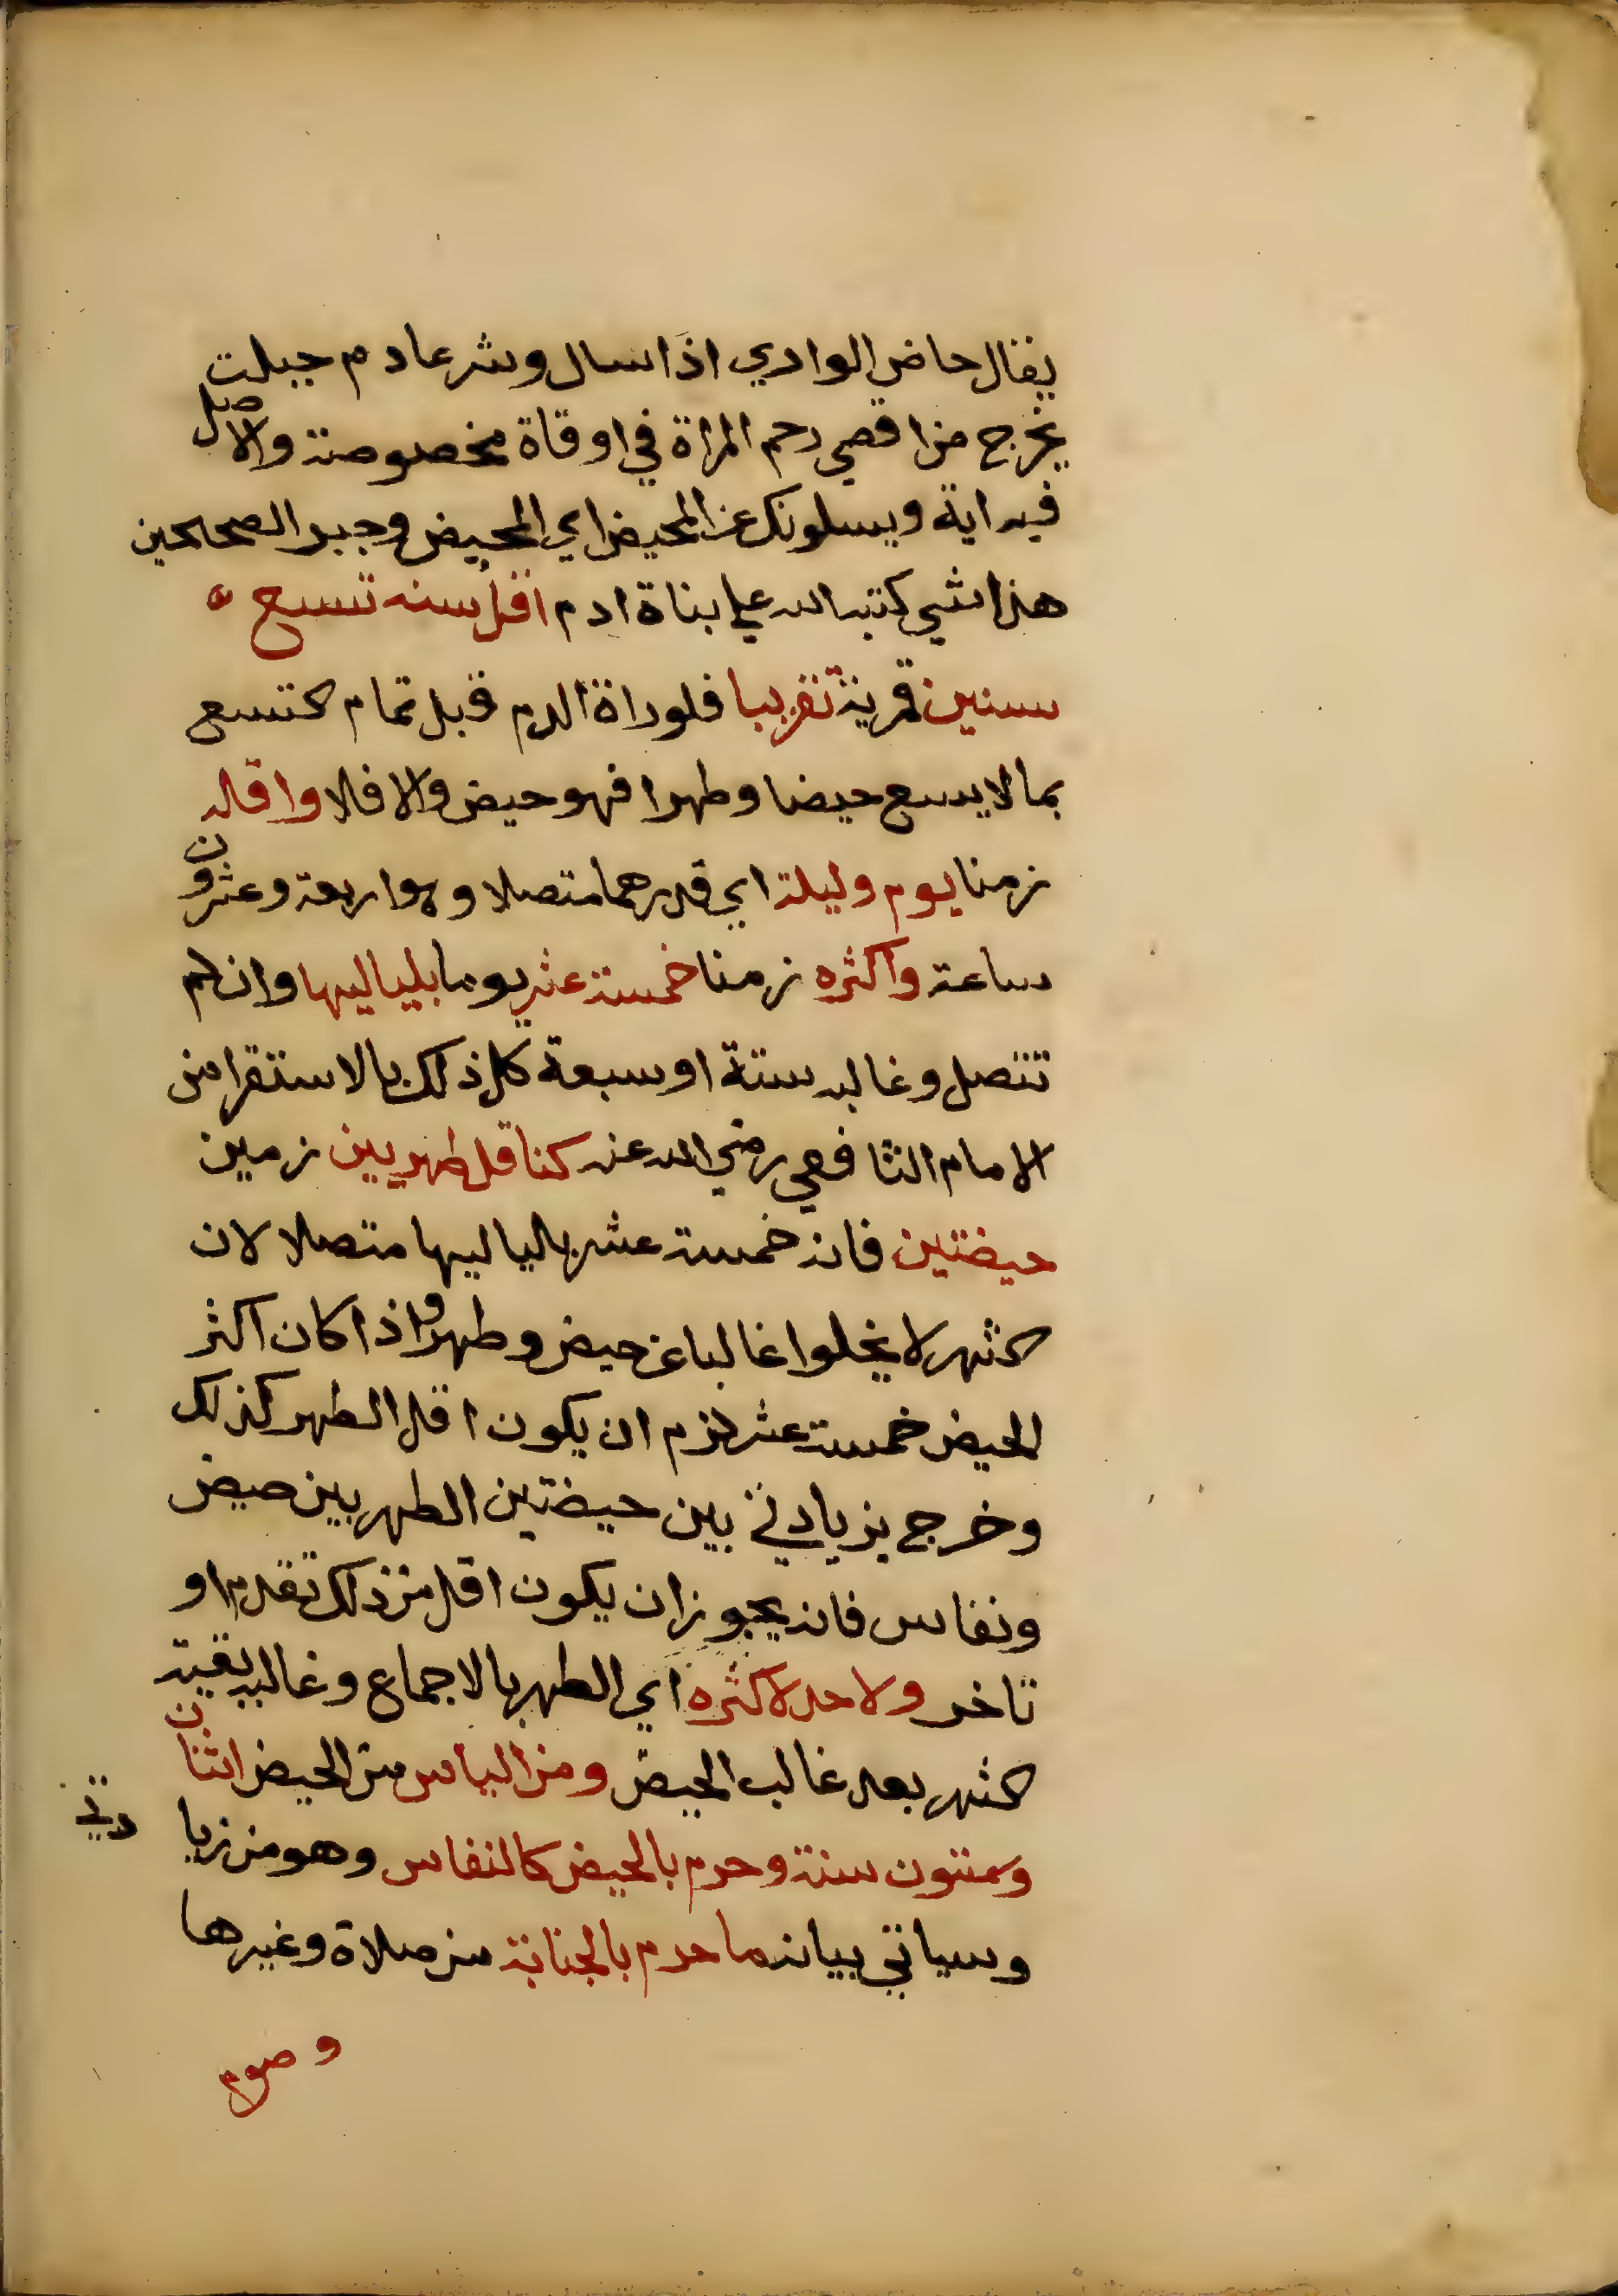 يقال حاض الوادي اذا سال وشرعا دم جبلت
يخرج من اقصي رحم المراة في اوقاة مخصوصة والاصل
فيه اية ويسلونك عن المحيض اي الحيض وجبر الصحيحين
هذا شي كتبه الله علي بناة ادم اقل سنه تسع
سنين قمرية تقريبا فلو راة الدم قبل تمام التسع
بما لا يسع حيضا وطهرا فهو حيض والا فلا واقله
زمنا يوم وليلة اي قدرهما متصلا وهو اربعة وعشرون
ساعة واكثره زمنا خمسة عشر يوما بلياليها وان لم
تتصل وغالبه ستة او سبعة كل ذلك بالاستقرا من
الامام الشافعي رضي الله عنه كنا قل طهر بين زمين
حيضتين فانه خمسة عشر بلياليها متصلا لان
الشهر لا يخلوا غالبا عن حيض وطهر واذا كان اكثر
الحيض خمسة عشر لزم ان يكون اقل الطهر كذلك
وخرج بزيادتي بين حيضتين الطهر بين حيض
ونفاس فانه يجوز ان يكون اقل من ذلك تقدم او
تاخر ولا حد لاكثره اي الطهر بالاجماع وغالبه بقية
الشهر بعد غالب الحيض ومن الياس من الحيض اثنان
وستون سنة وحرم بالحيض كالنفاس وهو من زيا
دتي
وسياتي بيانه ما حرم بالجنابة من صلاة وغيرها
و صوم